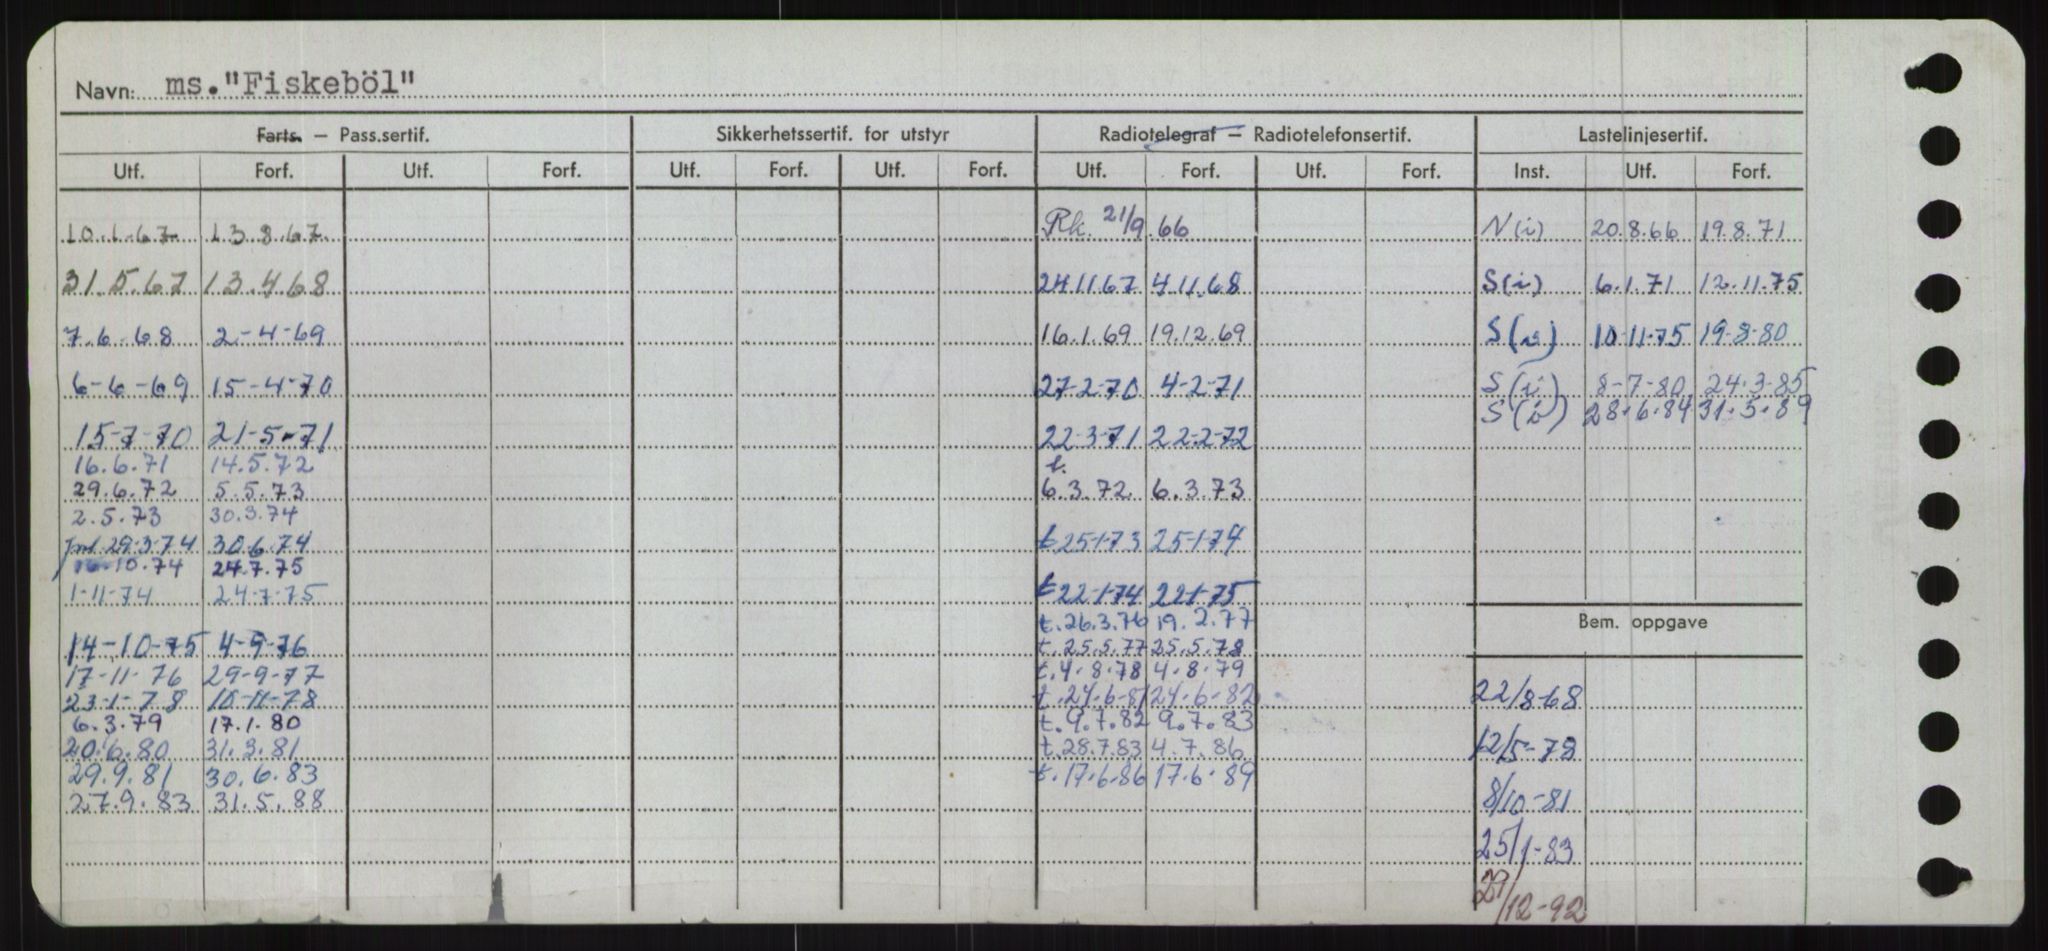 Navn: ms."Fiskeböl"
Farts. — Pass.sertif. Sikkerhetssertif. for utstyr Radiotelegraf — Radiotelefonsertif. Lastelinjesertif.
Utf. Forf. Utf. Forf. Utf. Forf. Utf. Forf. Utf. Forf. Utf. Forf. Inst. Utf. Forf.
10.1.67 13.8.67 Rk. 21/9.66 N(i) 20.8.66 19.8.71
31.5.67 13.4.68 24.11.67 4.11.68 S(i) 6.1.71 12.11.75
7.6.68 2-4-69 16.1.69 19.12.69 S(i) 10-11-75 19-8-80
6-6-69 15-4-70 27-2-70 4-2-71 S(i) 8-7-80 24.3.85
S(i) 28.6.84 31.5.89
15-7-70 21-5-71 22-3-71 22-2-72
16.6.71 14.5.72 t.
29.6.72 5.5.73 6.3.72 6.3.73
2.5.73 30.3.74
29.3.74 30.6.74 t 25-1-73 25-1-74
10.74 24.7.75
1-11-74 24-7-75 t 22-1-74 22-1-75
t. 26.3.76 19.2.77
Bem. oppgave
14-10-75 4-9-76 t. 25.5.77 25.5.78
17-11-76 29-9-77 t. 4.8.78 4.8.79
23-1-78 10-11-78 t. 24.6-81 24.6-82 22/8-68
6.3.79 17.1.80 t. 9.7.82 9.7.83
20.6.80 31.3.81 t. 28.7.83 4.7.86 12/5-78
29.9.81 30.6.83 t. 17.6.86 17.6.89
27.9.83 31.5.88 8/10-81
25/1-83
29/12-92